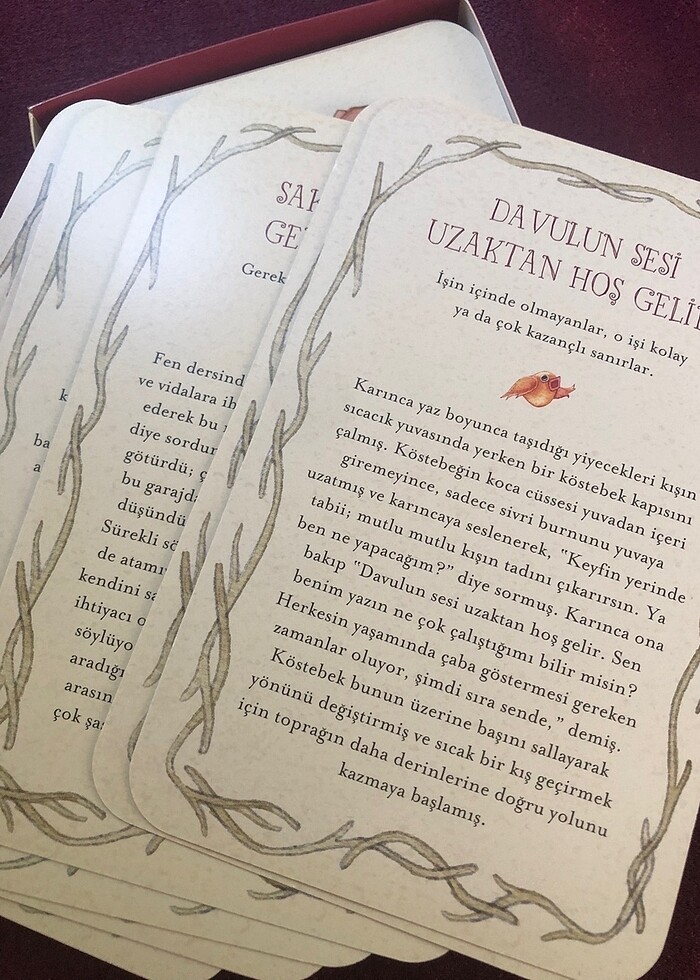 DAVULUN SESİ
UZAKTAN HOŞ GELİR
İşin içinde olmayanlar, o işi kolay
ya da çok kazançlı sanırlar.
Karınca yaz boyunca taşıdığı yiyecekleri kışın
sıcacık yuvasında yerken bir köstebek kapısını
çalmış. Köstebeğin koca cüssesi yuvadan içeri
giremeyince, sadece sivri burnunu yuvaya
uzatmış ve karıncaya seslenerek, “Keyfin yerinde
tabii; mutlu mutlu kışın tadını çıkarırsın. Ya
ben ne yapacağım?” diye sormuş. Karınca ona
bakıp “Davulun sesi uzaktan hoş gelir. Sen
benim yazın ne çok çalıştığımı bilir misin?
Herkesin yaşamında çaba göstermesi gereken
zamanlar oluyor, şimdi sıra sende, ” demiş.
Köstebek bunun üzerine başını sallayarak
yönünü değiştirmiş ve sıcak bir kış geçirmek
için toprağın daha derinlerine doğru yolunu
kazmaya başlamış.
Gerek
Fen dersind
ve vidalara ih
ederek bu
diye sordu
götürdü;
bu garajd
düşündü
Sürekli
de atam
kendini
ihtiyacı
söylüyo
aradığı
arasın
çok